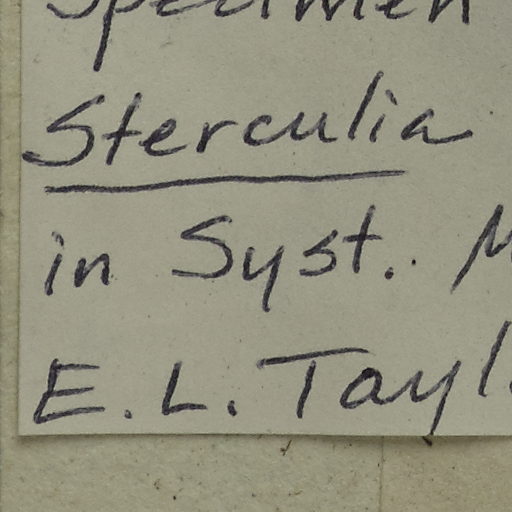 Specimen
Sterculia
in Syst.
E. L. Tayl